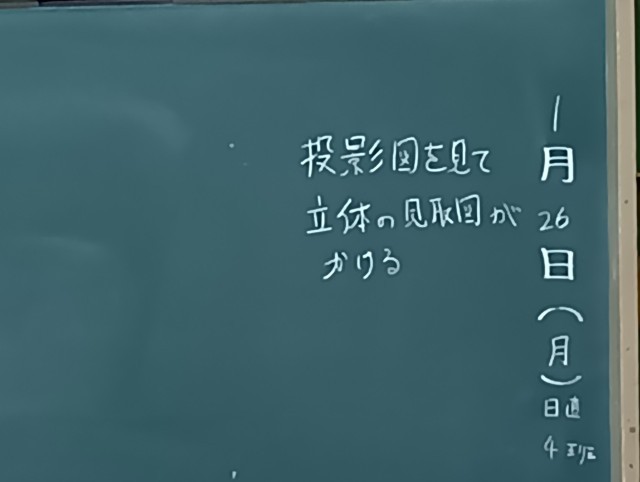 1月26日(月)
日直
4班
投影図を見て
立体の見取図が
かける